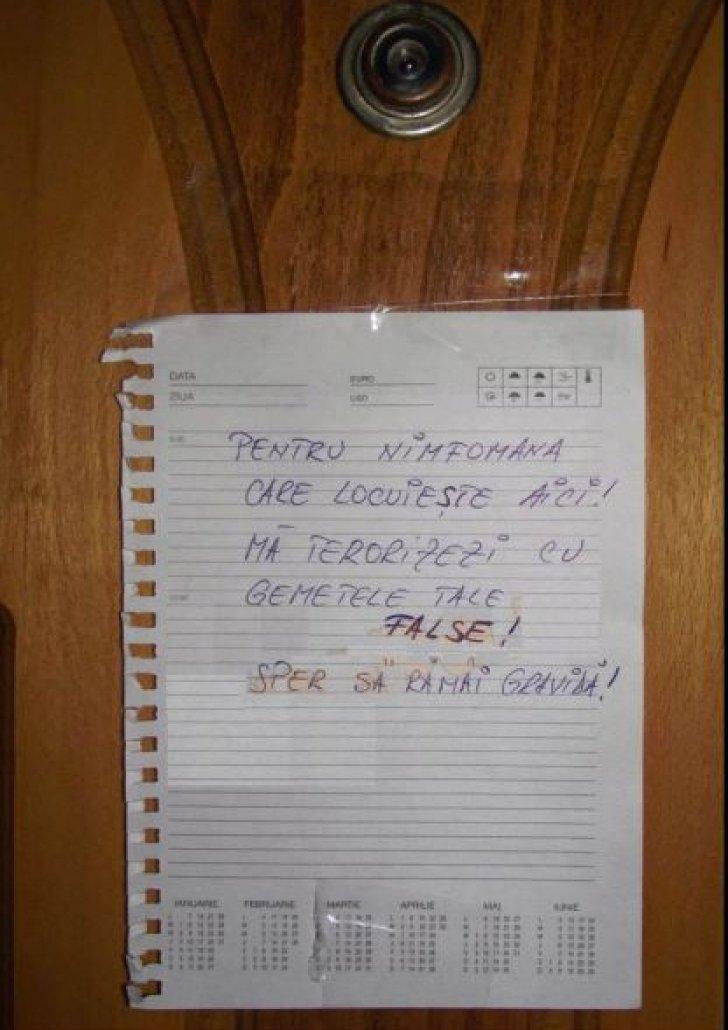 DATA
EURO
ZIUA
USD
PENTRU NIMFOMANA
CARE LOCUIEȘTE AICI!
MĂ TERORIZEZI CU
GEMETELE TALE
FALSE!
SPER SĂ RĂMÂI GRAVIDĂ!
IANUARIE FEBRUARIE MARTIE APRILIE MAI IUNIE